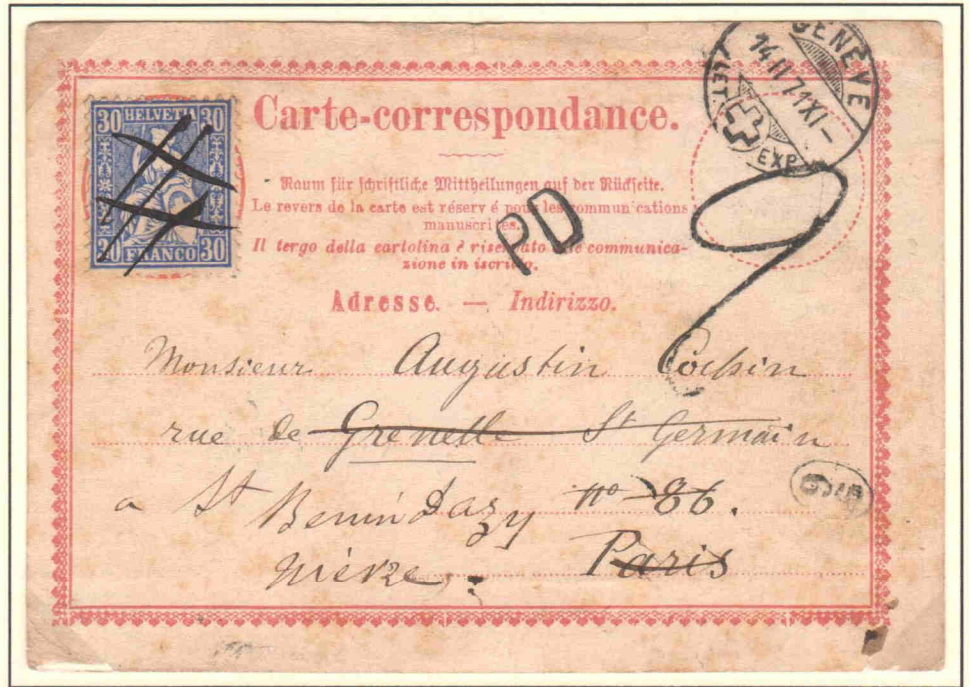 GENÈVE
14 II 71 XI–
LET. EXP.
30 HELVETIA 30
30 FRANCO 30
Carte-correspondance.
Raum für schriftliche Mittheilungen auf der Rückseite.
Le revers de la carte est réserv é pour les commun cations
manuscrites.
Il tergo della cartolina è riservato alle communica-
zione in iscritto.
PD
9
Adresse. — Indirizzo.
Monsieur Augustin Cochin
rue de Grenelle St Germain
a St Benin Dazy no 86.
Nièvre. Paris